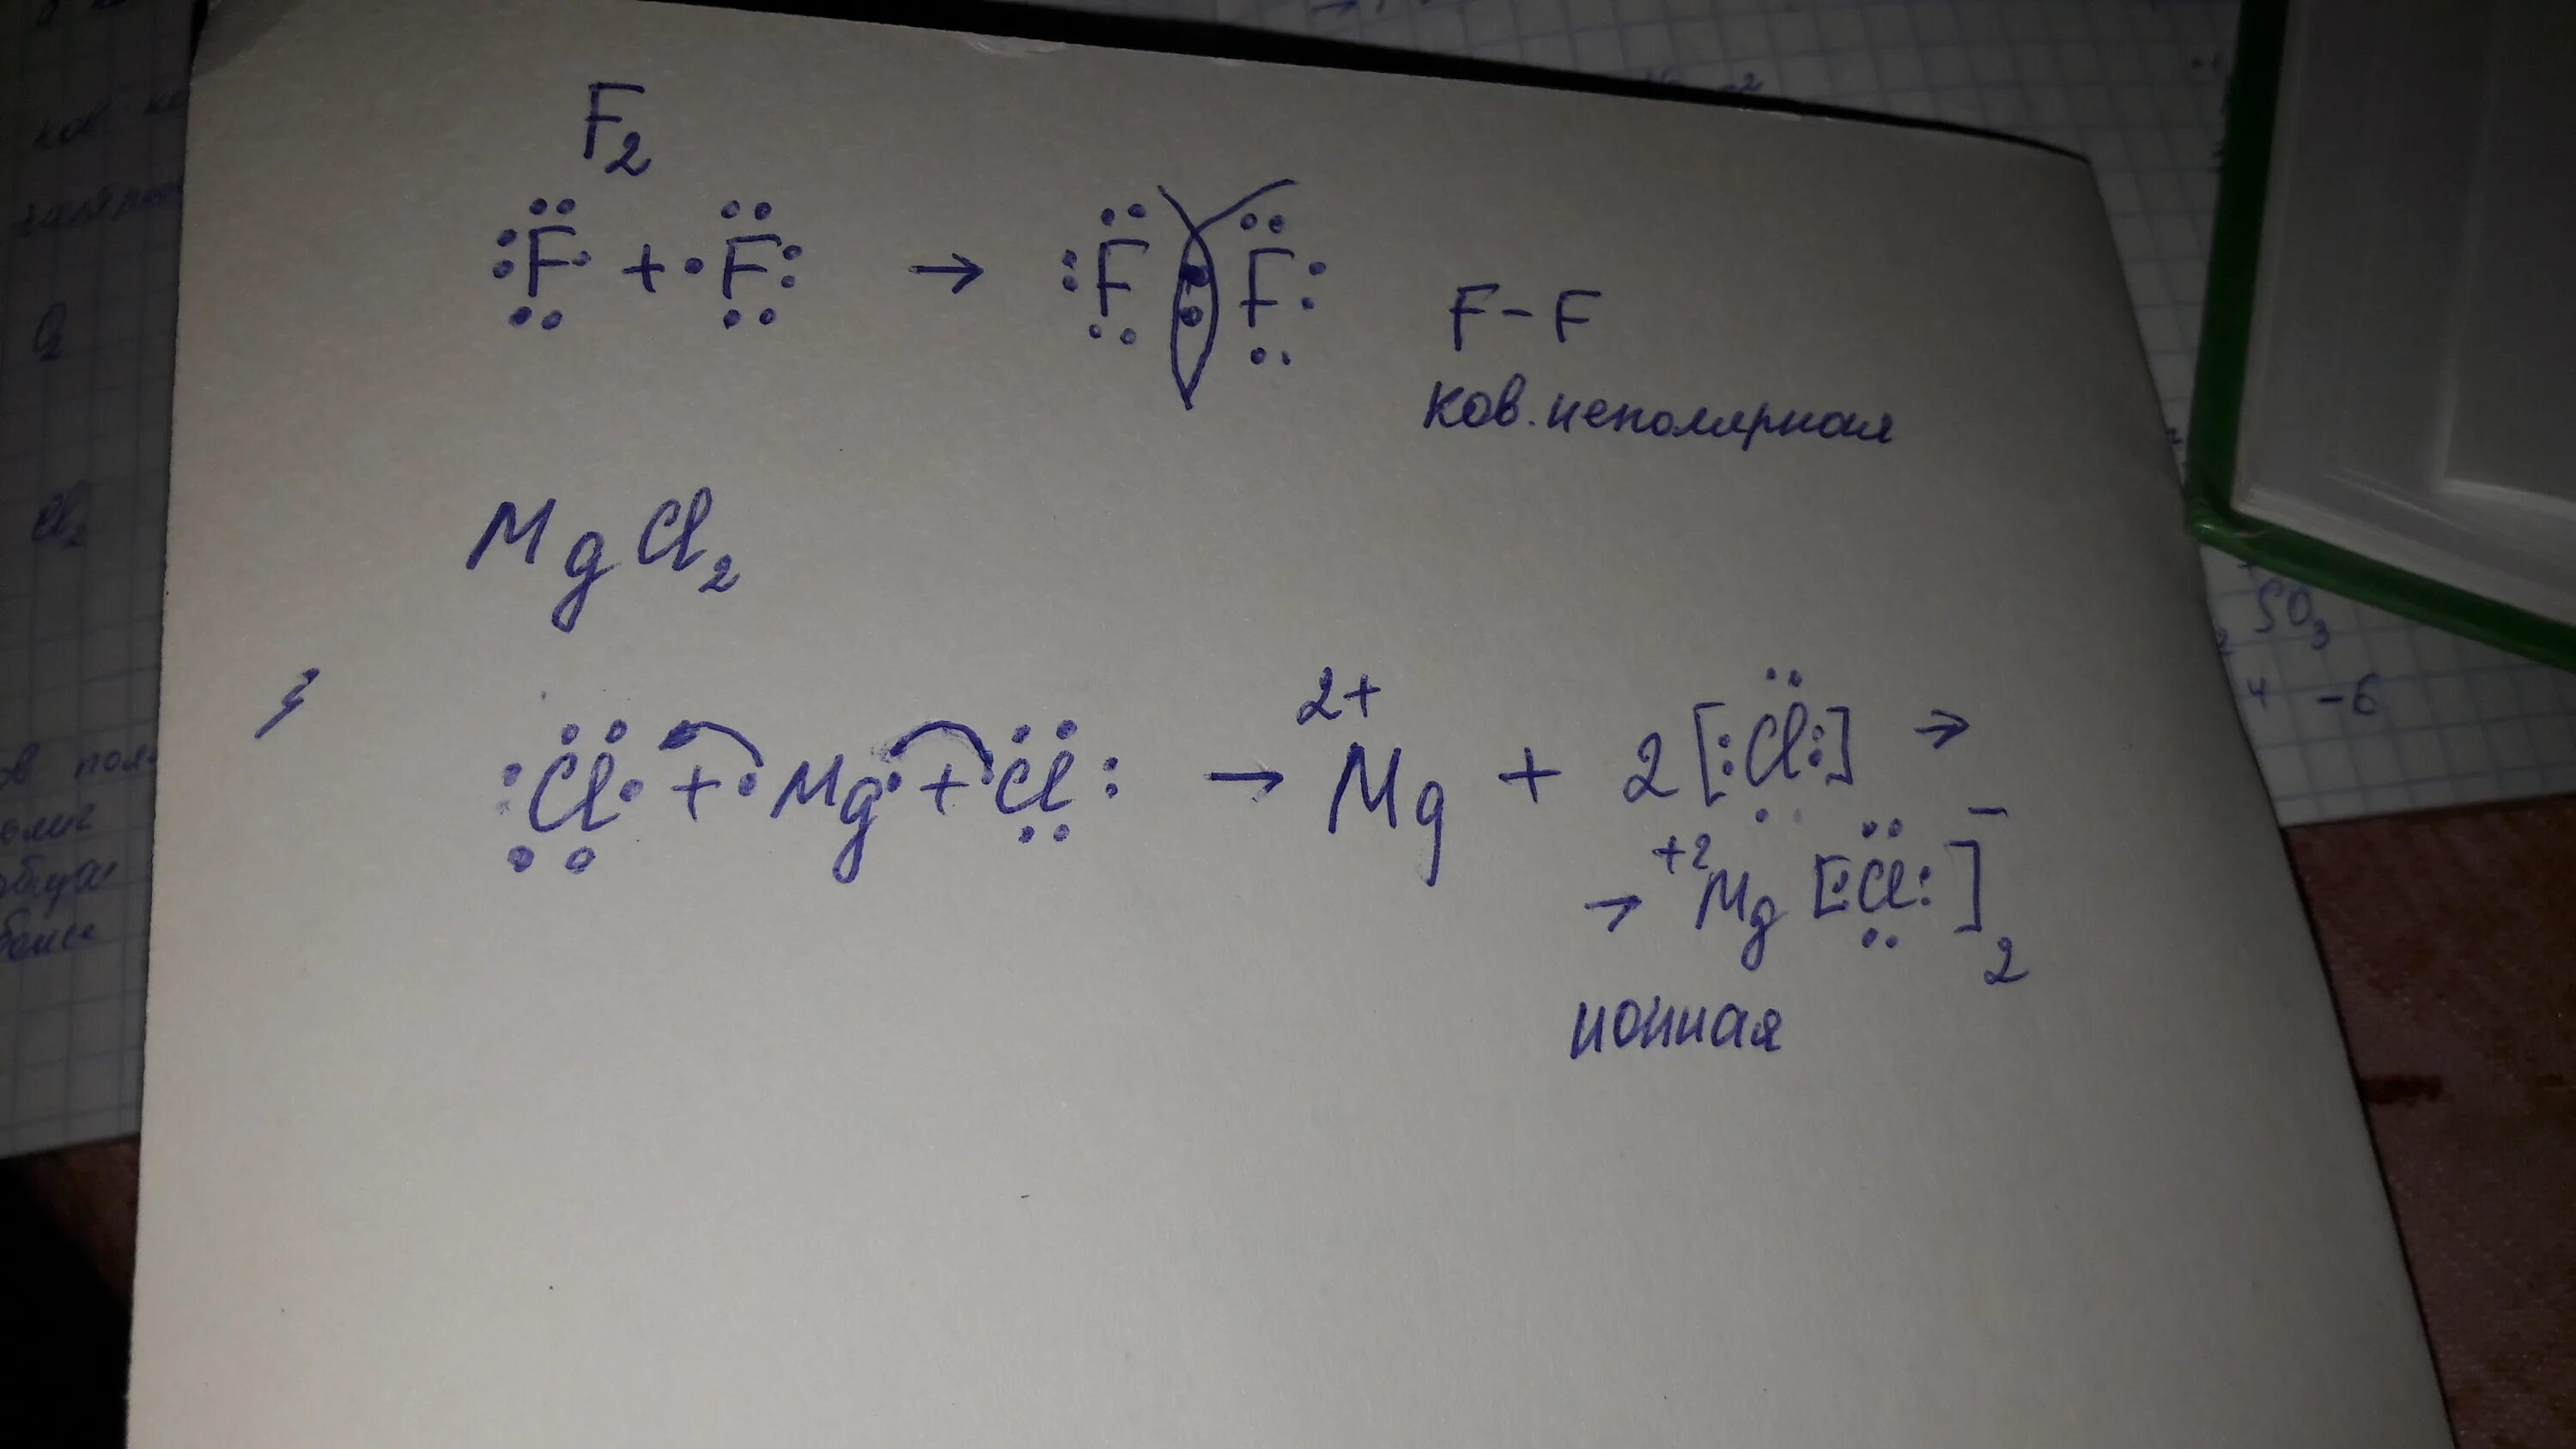 F2
:F· + ·F: → :F : F: F-F
ков. неполярная
MgCl2
:Cl· + ·Mg· + ·Cl: → Mg2+ + 2[:Cl:] →
→ +2Mg[:Cl:]−2
ионная
O2
Cl2
SO3
-6